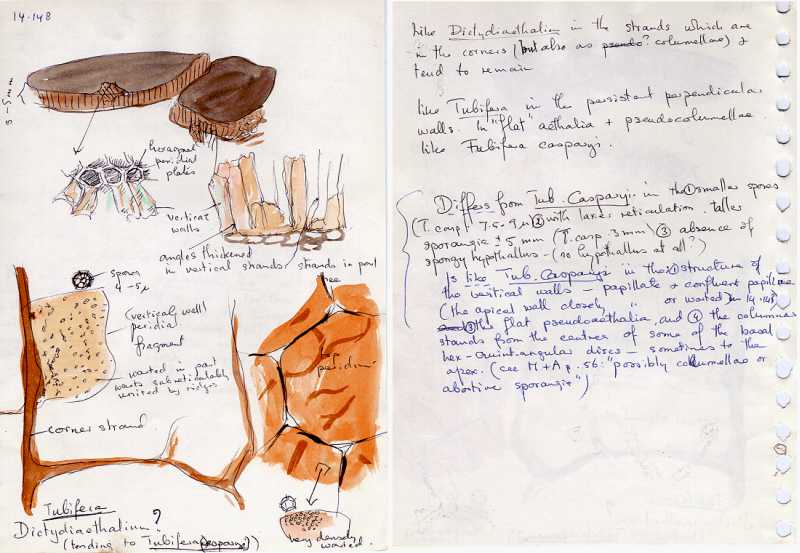 14-148
3-5 mm
hexagonal
peridial
plates
vertical
walls
angles thickened
in vertical strands strands in part
free
spores
4-5μ
(vertical wall)
peridial
fragment
warted in part
warts subreticulately
united by ridges
corner strand
top of
peridium
very densely
warted
Tubifera
Dictydiaethalium?
(tending to Tubifera (casparyi))
Like Dictydiaethalium in the strands which are
in the corners (but also as pseudo? columellae) &
tend to remain
Like Tubifera in the persistent perpendicular
walls. In "flat" aethalia + pseudocolumellae.
like Tubifera casparyi.
Differs from Tub. Casparyi in the ① smaller spores
(T. casp. 7.5-9μ) ② with laxer reticulation. taller
sporangia ± 5 mm (T. casp. 3 mm) ③ absence of
spongy hypothallus - (no hypothallus at all?)
Is like Tub. Casparyi in the ① structure of
the vertical walls - papillate & confluent papillae
(the apical wall closely " or warted in 14.148)
③ the flat pseudoaethalia, and ④ the columnar
strands from the centres of some of the basal
hex-quintangular discs - sometimes to the
apex. (see M+A p. 56: "possibly columellae or
abortive sporangia")